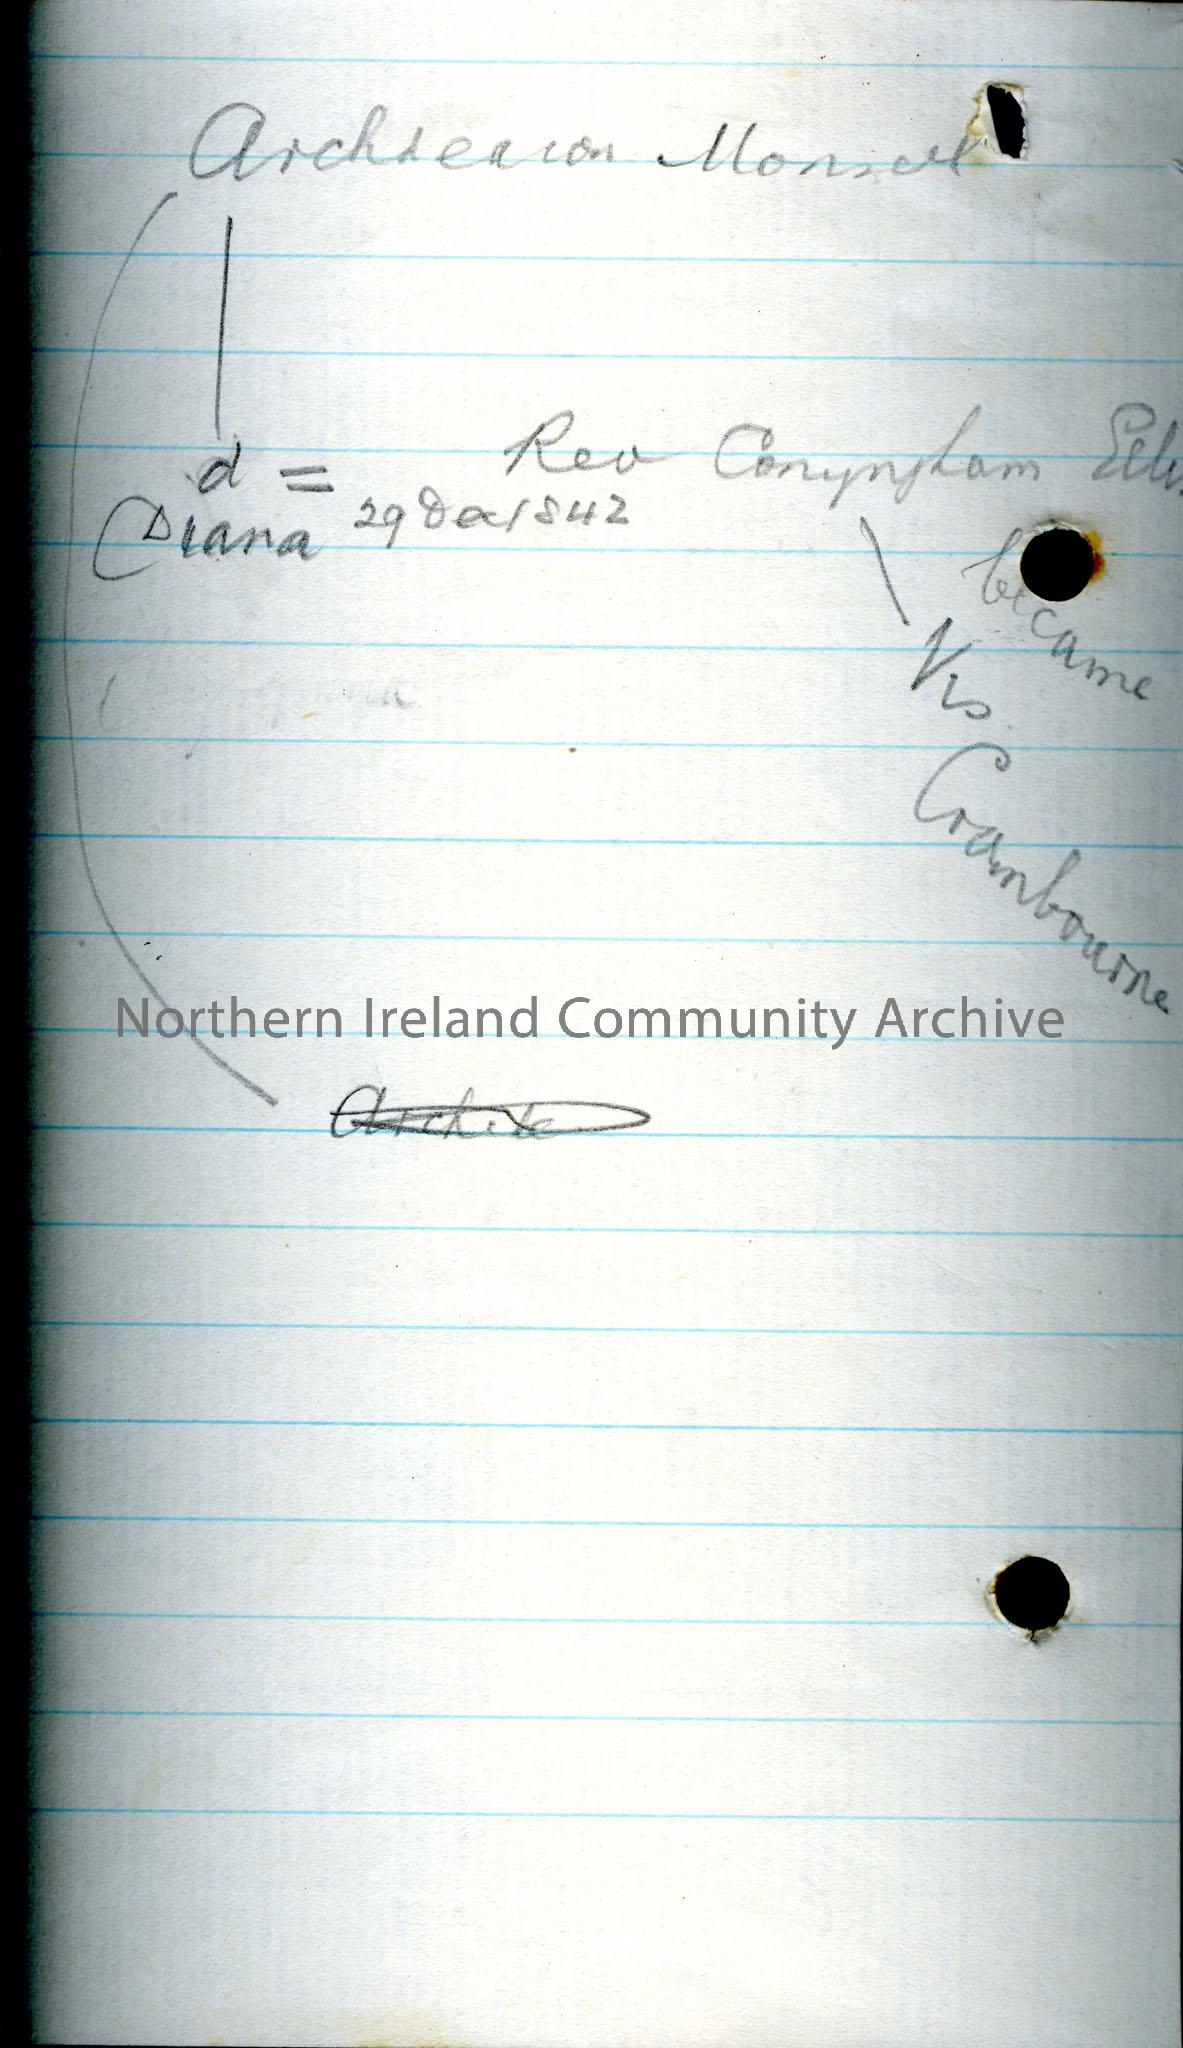 Archdeacon Monsell
d = Rev Conyngham Ellis
Diana 29 Dec 1842
became
Vic.
Crambourne
Northern Ireland Community Archive